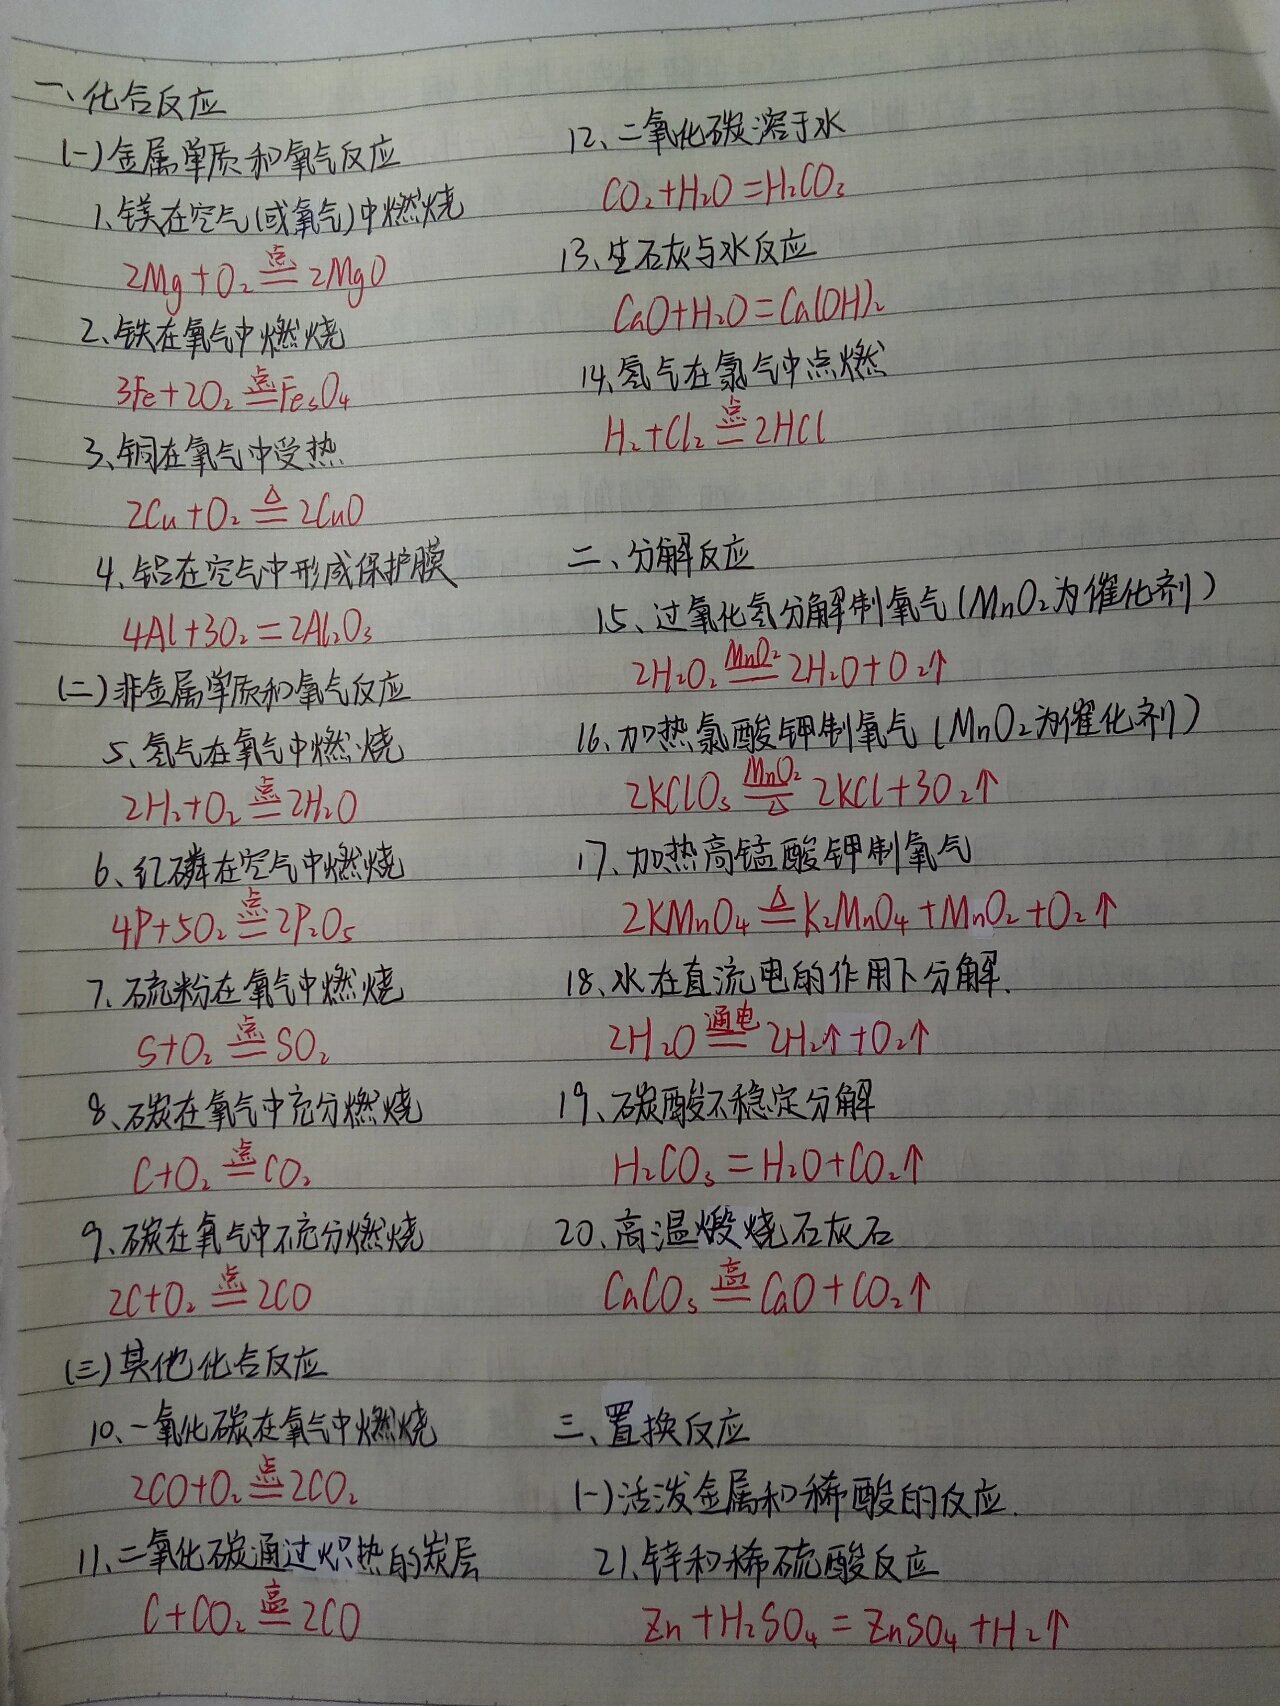 一、化合反应
(一)金属单质和氧气反应
1、镁在空气(或氧气)中燃烧
2Mg+O₂ 点═ 2MgO
2、铁在氧气中燃烧
3Fe+2O₂ 点═ Fe₃O₄
3、铜在氧气中受热
2Cu+O₂ △═ 2CuO
4、铝在空气中形成保护膜
4Al+3O₂=2Al₂O₃
(二)非金属单质和氧气反应
5、氢气在氧气中燃烧
2H₂+O₂ 点═ 2H₂O
6、红磷在空气中燃烧
4P+5O₂ 点═ 2P₂O₅
7、硫粉在氧气中燃烧
S+O₂ 点═ SO₂
8、碳在氧气中充分燃烧
C+O₂ 点═ CO₂
9、碳在氧气中不充分燃烧
2C+O₂ 点═ 2CO
(三)其他化合反应
10、一氧化碳在氧气中燃烧
2CO+O₂ 点═ 2CO₂
11、二氧化碳通过炽热的炭层
C+CO₂ 高═ 2CO
12、二氧化碳溶于水
CO₂+H₂O=H₂CO₃
13、生石灰与水反应
CaO+H₂O=Ca(OH)₂
14、氢气在氯气中点燃
H₂+Cl₂ 点═ 2HCl
二、分解反应
15、过氧化氢分解制氧气(MnO₂为催化剂)
2H₂O₂ MnO₂═ 2H₂O+O₂↑
16、加热氯酸钾制氧气(MnO₂为催化剂)
2KClO₃ MnO₂═△ 2KCl+3O₂↑
17、加热高锰酸钾制氧气
2KMnO₄ △═ K₂MnO₄+MnO₂+O₂↑
18、水在直流电的作用下分解.
2H₂O 通电═ 2H₂↑+O₂↑
19、碳酸不稳定分解
H₂CO₃=H₂O+CO₂↑
20、高温煅烧石灰石
CaCO₃ 高═ CaO+CO₂↑
三、置换反应
(一)活泼金属和稀酸的反应.
21、锌和稀硫酸反应
Zn+H₂SO₄=ZnSO₄+H₂↑